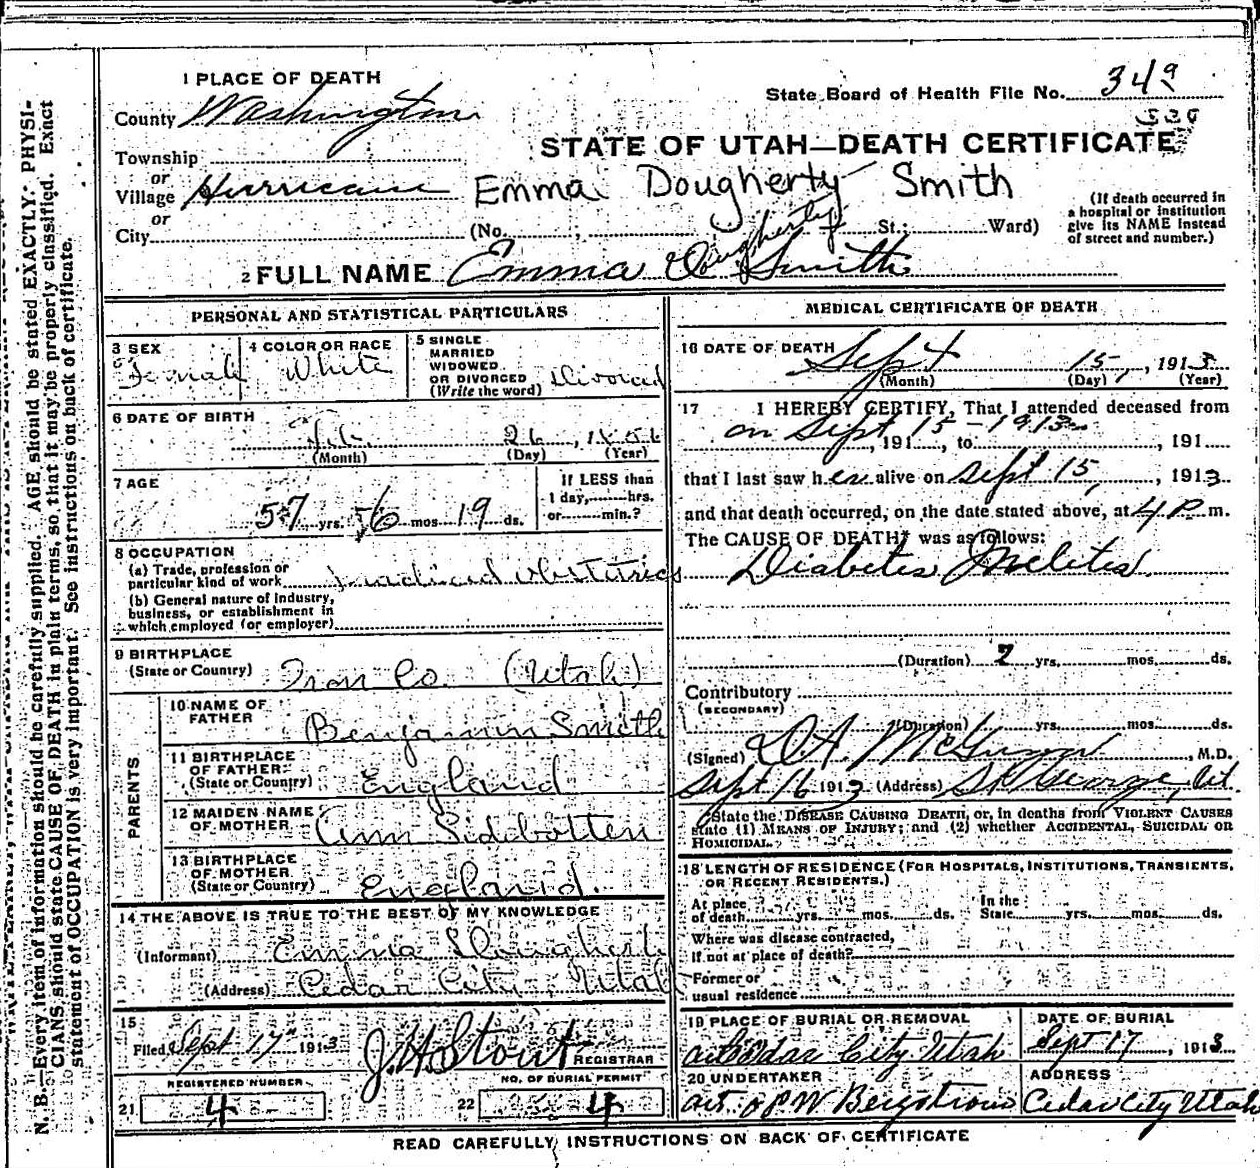 1 PLACE OF DEATH
County Washington
State Board of Health File No. 349
STATE OF UTAH—DEATH CERTIFICATE
Township
or
Village Hurricane
Emma Dougherty Smith
or
City (No. ; St.; Ward)
(If death occurred in
a hospital or institution
give its NAME instead
of street and number.)
Dougherty
2 FULL NAME Emma D. Smith
PERSONAL AND STATISTICAL PARTICULARS
3 SEX Female
4 COLOR OR RACE White
5 SINGLE
MARRIED
WIDOWED
OR DIVORCED Divorced
(Write the word)
6 DATE OF BIRTH
Feb. 26, 1856
(Month) (Day) (Year)
7 AGE
57 yrs. 6 mos. 19 ds.
If LESS than
1 day, hrs.
or min.?
8 OCCUPATION
(a) Trade, profession or
particular kind of work Obstetrics
(b) General nature of industry,
business, or establishment in
which employed (or employer)
9 BIRTHPLACE
(State or Country) Iron Co. (Utah)
PARENTS
10 NAME OF
FATHER Benjamin Smith
11 BIRTHPLACE
OF FATHER
(State or Country) England
12 MAIDEN NAME
OF MOTHER Ann Sidebotten
13 BIRTHPLACE
OF MOTHER
(State or Country) England.
14 THE ABOVE IS TRUE TO THE BEST OF MY KNOWLEDGE
(Informant) Emma Dougherty
(Address) Cedar City, Utah
15
Filed Sept 17 1913 J. H. Stout REGISTRAR
REGISTERED NUMBER
21 4
NO. OF BURIAL PERMIT
22 4
MEDICAL CERTIFICATE OF DEATH
16 DATE OF DEATH Sept 15, 1913
(Month) (Day) (Year)
17 I HEREBY CERTIFY, That I attended deceased from
on Sept 15-1913
, 191 , to , 191
that I last saw her alive on Sept 15, , 1913
and that death occurred, on the date stated above, at 4 P m.
The CAUSE OF DEATH* was as follows:
Diabetes Melitis
(Duration) 2 yrs. mos. ds.
Contributory
(SECONDARY)
(Duration) yrs. mos. ds.
(Signed) , M.D.
Sept 16 1913 (Address) St George, Ut.
*State the DISEASE CAUSING DEATH, or, in deaths from VIOLENT CAUSES
state (1) MEANS OF INJURY; and (2) whether ACCIDENTAL, SUICIDAL OR
HOMICIDAL.
18 LENGTH OF RESIDENCE (FOR HOSPITALS, INSTITUTIONS, TRANSIENTS,
OR RECENT RESIDENTS.)
At place
of death yrs. mos. ds.
In the
State yrs. mos. ds.
Where was disease contracted,
if not at place of death?
Former or
usual residence
19 PLACE OF BURIAL OR REMOVAL
Cedar City Utah
DATE OF BURIAL
Sept 17, 1913
20 UNDERTAKER
ADDRESS
Cedar City Utah
READ CAREFULLY INSTRUCTIONS ON BACK OF CERTIFICATE
N. B.—Every item of information should be carefully supplied. AGE should be stated EXACTLY. PHYSI-
CIANS should state CAUSE OF DEATH in plain terms, so that it may be properly classified. Exact
statement of OCCUPATION is very important. See instructions on back of certificate.